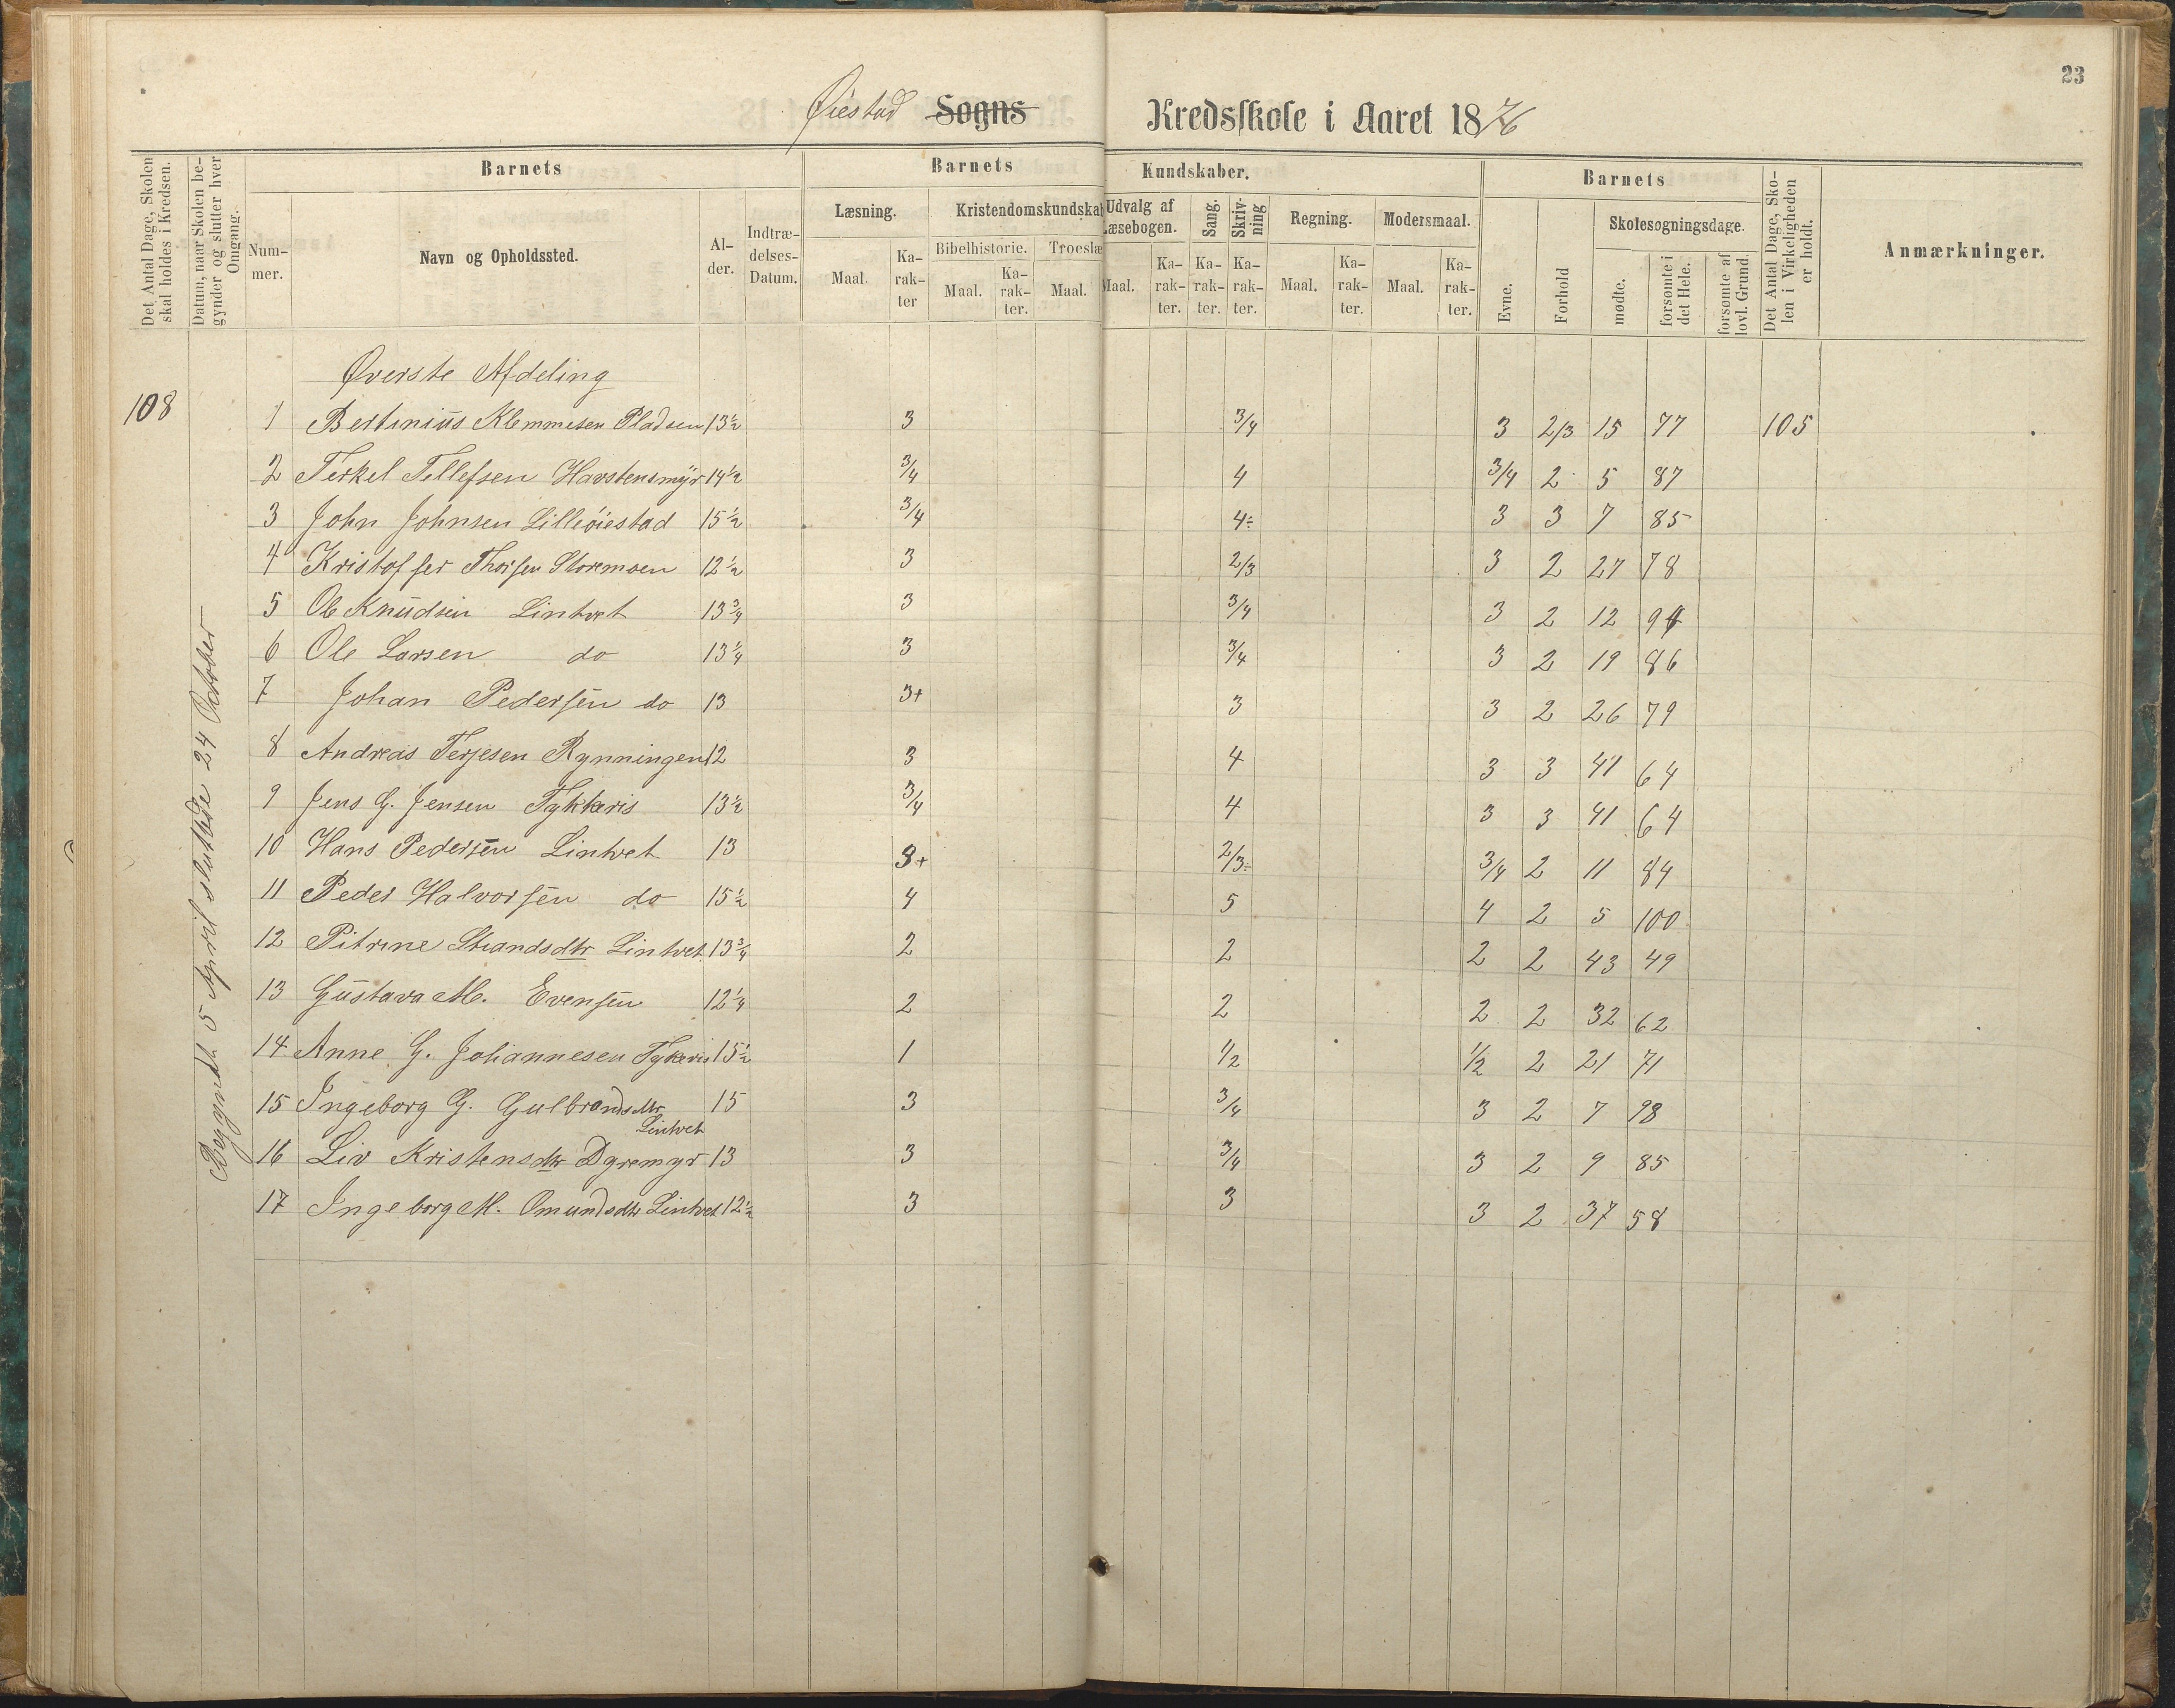 23
Øiestad Sogns Kredsskole i Aaret 1876
Det Antal Dage, Skolen skal holdes i Kredsen.
Datum, naar Skolen begynder og slutter hver Omgang.
Barnets
Num-mer.
Navn og Opholdssted.
Al-der.
Indtræ-delses-Datum.
Barnets Kundskaber.
Læsning. Kristendomskundskab Udvalg af Læsebogen. Sang. Skriv-ning Regning. Modersmaal.
Bibelhistorie. Troeslæ
Maal. Ka-rak-ter Maal. Ka-rak-ter. Maal. Maal. Ka-rak-ter. Ka-rak-ter. Ka-rak-ter. Maal. Ka-rak-ter. Maal. Ka-rak-ter.
Barnets
Evne. Forhold Skolesøgningsdage.
mødte. forsømte i det Hele. forsømte af lovl. Grund.
Det Antal Dage, Sko-len i Virkeligheden er holdt.
Anmærkninger.
Øverste Afdeling
108
Begyndt 5 April sluttede 24 October
1 Bertinius Klemmesen Pladsen 13½ 3 3/4 3 2/3 15 77 105
2 Terkel Tellefsen Havstensmyr 14½ 3/4 4 3/4 2 5 87
3 John Johnsen Lilleøiestad 15½ 3/4 4÷ 3 3 7 85
4 Kristoffer Thorsen Storemoen 12½ 3 2/3 3 2 27 78
5 Ole Knudsen Lintvet 13¾ 3 3/4 3 2 12 94
6 Ole Larsen do 13¼ 3 3/4 3 2 19 86
7 Johan Pedersen do 13 3+ 3 3 2 26 79
8 Andreas Terjesen Rynningen 12 3 4 3 3 41 64
9 Jens G. Jensen Tykkeris 13½ 3/4 4 3 3 41 64
10 Hans Pedersen Lintvet 13 3+ 2/3÷ 3/4 2 11 84
11 Peder Halvorsen do 15½ 4 5 4 2 5 100
12 Pitrine Strandsdtr Lintvet 13¾ 2 2 2 2 43 49
13 Gustava M. Evensen 12¼ 2 2 2 2 32 62
14 Anne G. Johannesen Tykeris 15½ 1 1/2 1/2 2 21 71
15 Ingeborg G. Gulbrandsdtr 15 3 3/4 3 2 7 98
Lintvet
16 Liv Kristensdtr Dyremyr 13 3 3/4 3 2 9 85
17 Ingeborg M. Omundsdtr Lintvet 12½ 3 3 3 2 37 58